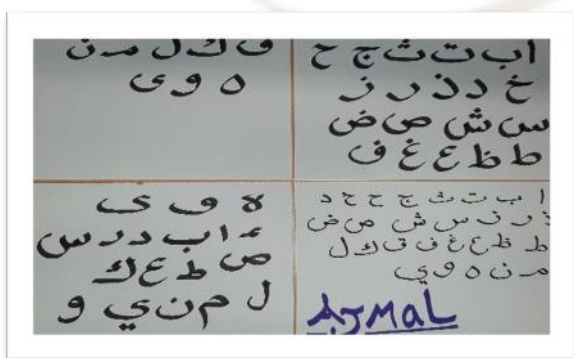 ا ب ت ث ج ح
خ د ذ ر ز
س ش ص ض
ط ظ ع غ ف
ق ك ل م ن
ه و ى
ا ب ت ث ج ح خ د
ذ ر ز س ش ص ض
ط ظ ع غ ف ق ك ل
م ن ه و ي
AJMAL
و ى
ء ا ب د ر س
ص ط ع ك
ل م ن ي و